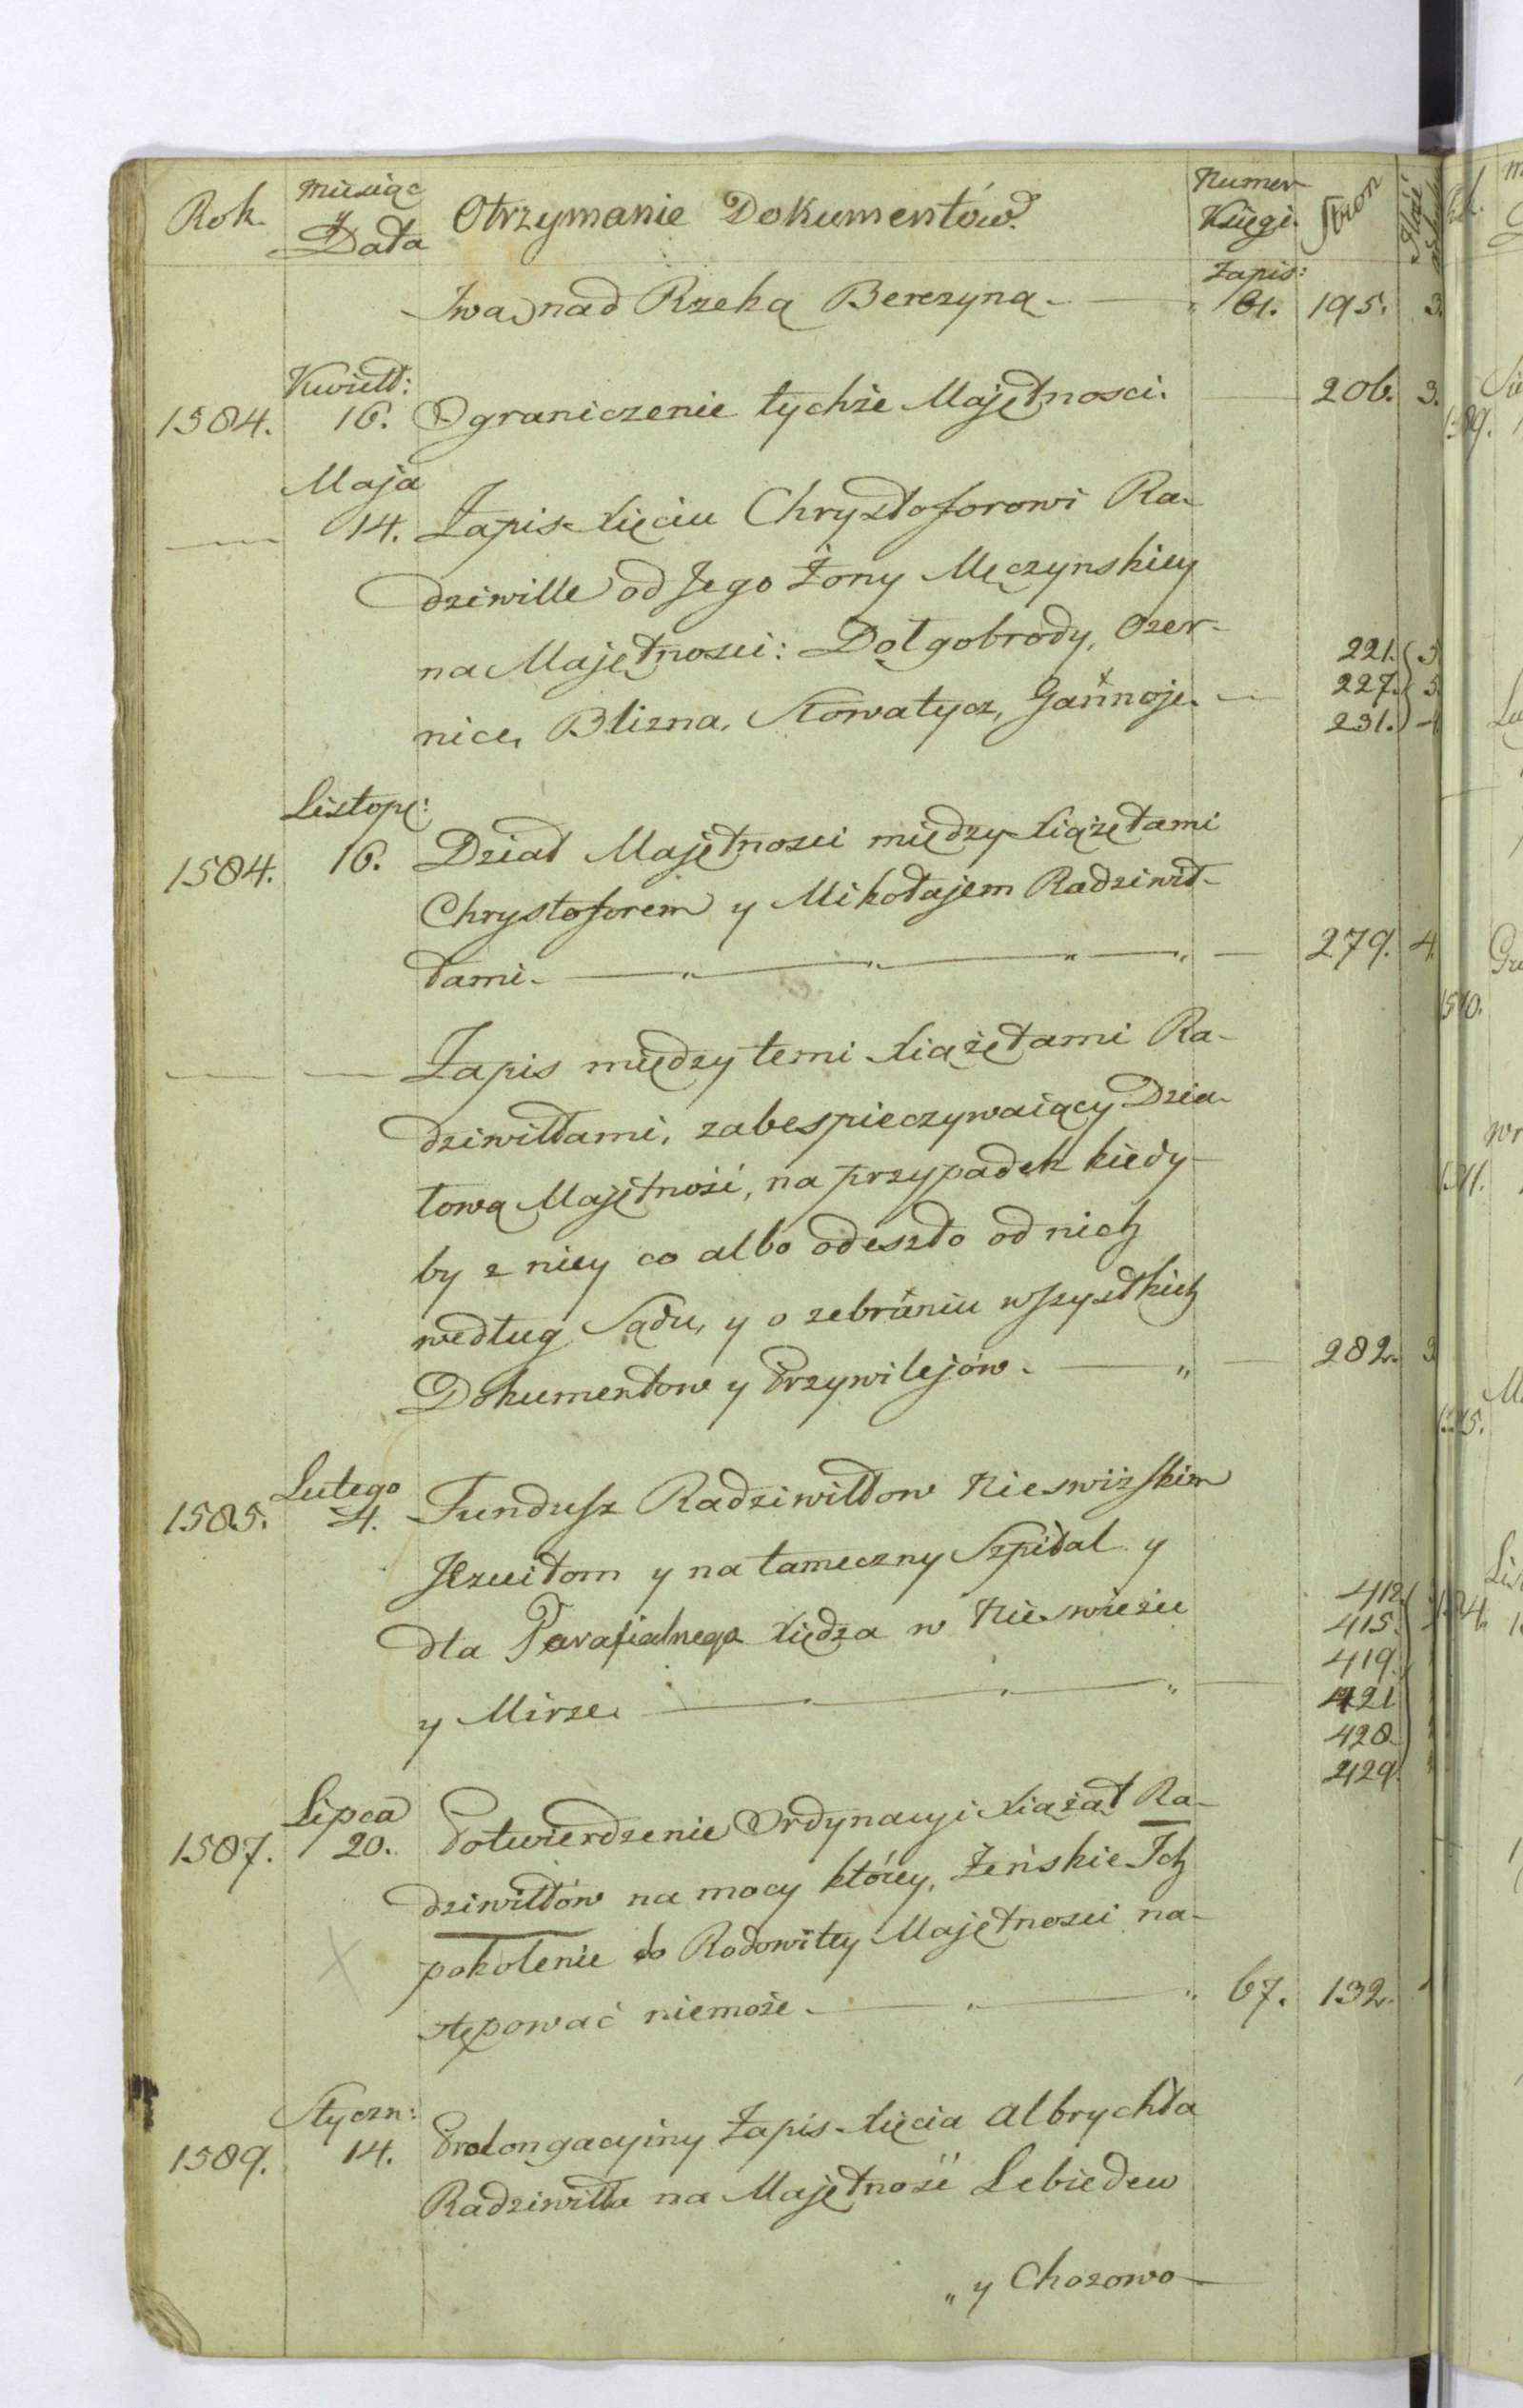 Rok. Miesiąc y Data Otrzymanie Dokumentów. Numer Księgi. Stron
Zapis:
Iwa nad Rzeką Berezyną. 61. 195. 3.
Kwiett:
1584. 16. Ograniczenie tychże Majętnosci. 206. 3.
Maja
14. Zapis Xięciu Chrysztoforowi Ra-
dziwille od Jego Żony Męczynskiey
na Majętnosci: Dołgobrody, Ozer- 221. 3
nice, Blizna, Słowatycz, Gannoje. 227. 3.
231. 4
Listop:
1584. 16. Dział Majętnosci między Xiążętami
Chrystoforem y Mikołajem Radziwił-
łami. 279. 4.
Zapis między temi Xiążętami Ra-
dziwiłłami, zabespieczywaiący Dzia-
łową Majętność, na przypadek kiedy
by z niey co albo odeszło od nich
według Sądu, y o zebraniu wszystkich
Dokumentow y Przywilejów. 282. 3
Lutego
1585. 4. Fundusz Radziwiłłow Nieswiżskim
Jezuitom y na tameczny Szpital y
dla Parafialnego Xiędza w Nieswieżu
y Mirze. 412.
415.
419.
421
428.
429.
Lipca
1587. 20. Potwierdzenie Ordynacyi Xiążąt Ra-
dziwiłłów na mocy którey, Żeńskie Ich
pokolenie do Rodowitey Majętnosci na-
stępować niemoże. 67. 132.
Styczn:
1589. 14. Prolongacyiny Zapis Xięcia Albrychta
Radziwiłła na Majętność Lebiedew
y Chozowo